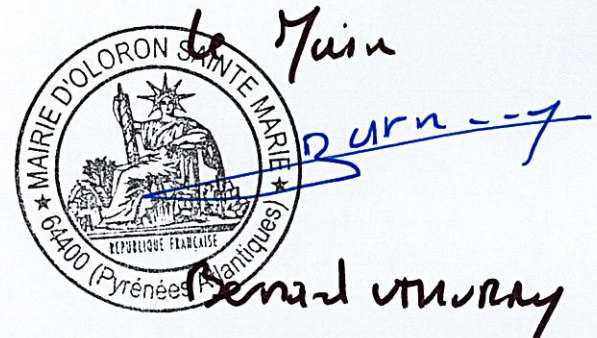 Le Maire
MAIRIE D'OLORON SAINTE MARIE
★ 64400 (Pyrénées Atlantiques) ★
RÉPUBLIQUE FRANÇAISE
Bernard UTHURRY